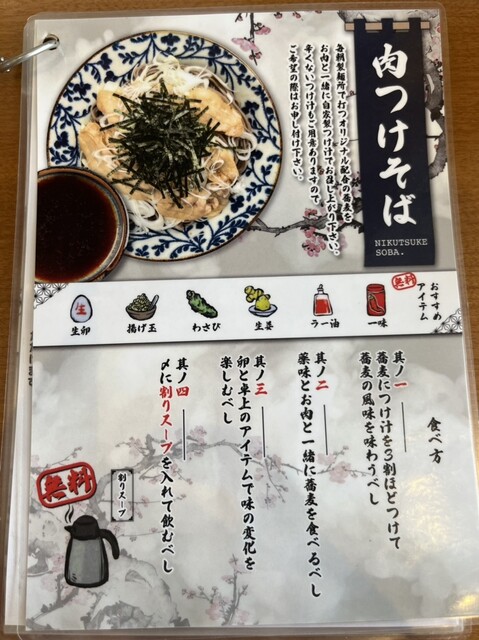 肉つけそば
NIKUTSUKE
SOBA.
毎朝製麺所で打つオリジナル配合の蕎麦を
お肉と一緒に自家製つけ汁でお召し上がり下さい。
辛くないつけ汁もご用意ありますので
ご希望の際はお申し付け下さい。
おすすめ
アイテム
無料
一味
ラー油
生姜
わさび
揚げ玉
生
生卵
食べ方
其ノ一
蕎麦につけ汁を3割ほどつけて
蕎麦の風味を味わうべし
其ノ二
薬味とお肉と一緒に蕎麦を食べるべし
其ノ三
卵と卓上のアイテムで味の変化を
楽しむべし
其ノ四
〆に割りスープを入れて飲むべし
割りスープ
無料